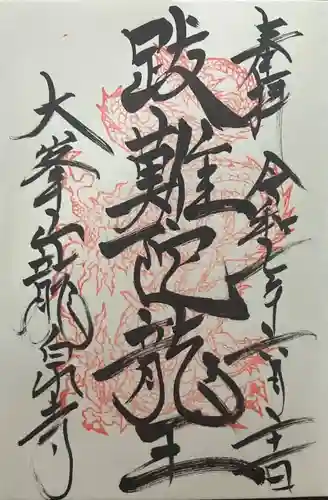 奉拝 令和七年六月二十一日
跋難陀龍王
大峯山龍泉寺